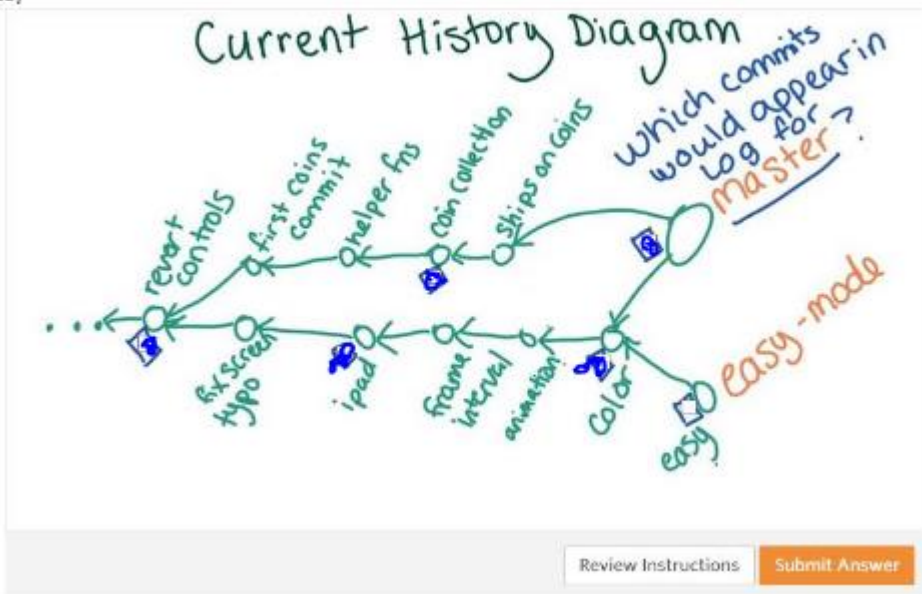 Current History Diagram
which commits
would appear in
log for
master?
revert
controls
first coins
commit
helper fns
coin collection
ships on coins
easy-mode
fix screen
typo
ipad
frame
interval
animation
color
easy
Review Instructions
Submit Answer